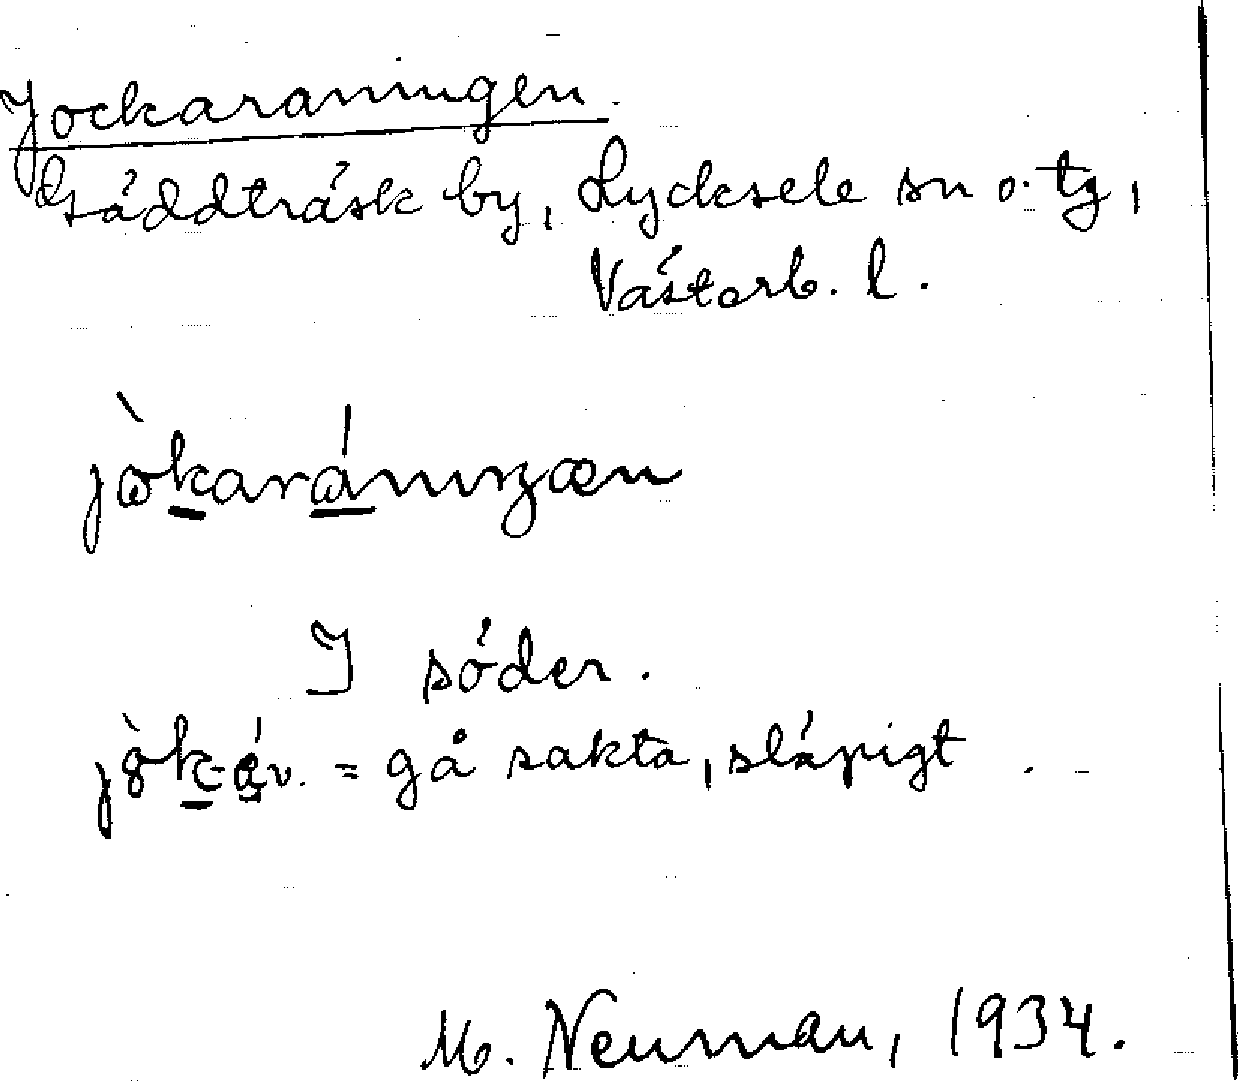 Jockaraningen.
Gäddträsk by, Lycksele sn o. tg,
Västerb. l.
jòkarániŋæn
I söder.
jòk-áv. = gå sakta, släpigt.
M. Neuman, 1934.